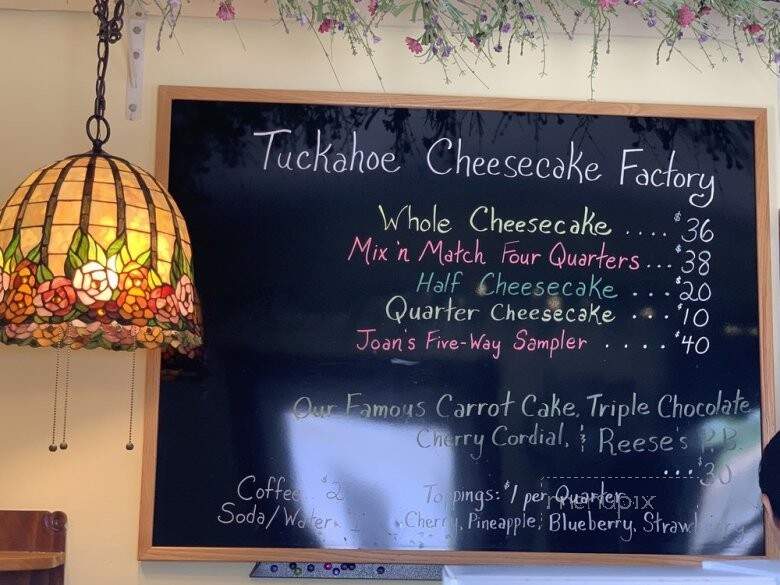 Tuckahoe Cheesecake Factory
Whole Cheesecake .... $36
Mix 'n Match Four Quarters ... $38
Half Cheesecake ... $20
Quarter Cheesecake ... $10
Joan's Five-Way Sampler .... $40
Our Famous Carrot Cake, Triple Chocolate
Cherry Cordial, & Reese's P.B.
... $30
Coffee $2
Toppings: $1 per Quarter
Soda/Water
Cherry, Pineapple, Blueberry, Strawberry
menupix